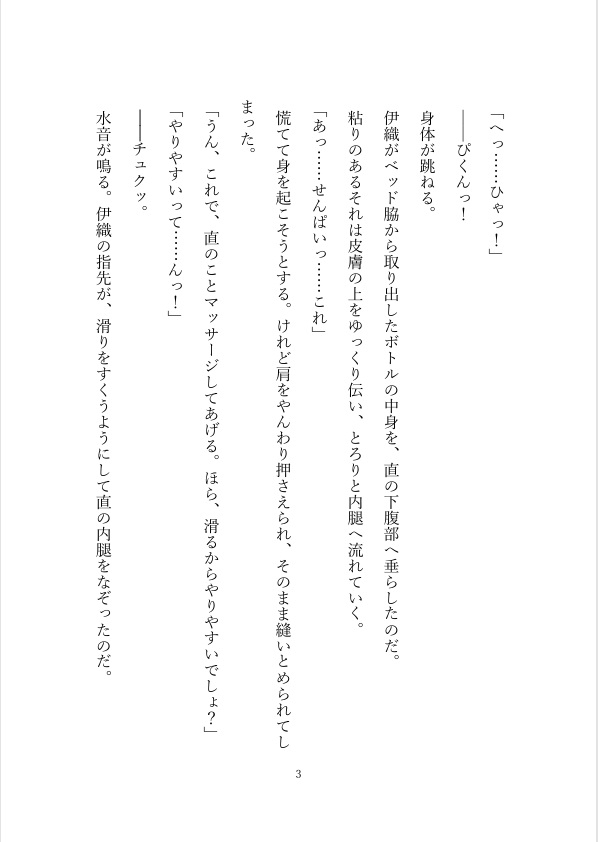 「へっ……ひゃっ！」
――ぴくんっ！
身体が跳ねる。
伊織がベッド脇から取り出したボトルの中身を、直の下腹部へ垂らしたのだ。
粘りのあるそれは皮膚の上をゆっくり伝い、とろりと内腿へ流れていく。
「あっ……せんぱいっ……これ」
慌てて身を起こそうとする。けれど肩をやんわり押さえられ、そのまま縫いとめられてし
まった。
「うん、これで、直のことマッサージしてあげる。ほら、滑るからやりやすいでしょ？」
「やりやすいって……んっ！」
――チュクッ。
水音が鳴る。伊織の指先が、滑りをすくうようにして直の内腿をなぞったのだ。
3